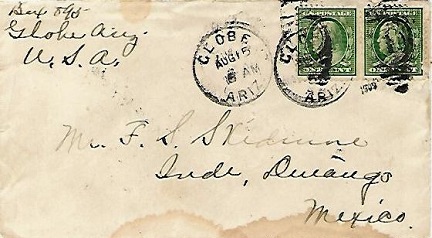 Box 895
Globe Ariz
U.S.A.
GLOBE
AUG 15
AM
ARIZ.
GLOBE
ARIZ.
1909
U.S. POSTAGE
ONE CENT
U.S. POSTAGE
ONE CENT
Mr. F. S. Skidmore
Inde, Durango
Mexico.